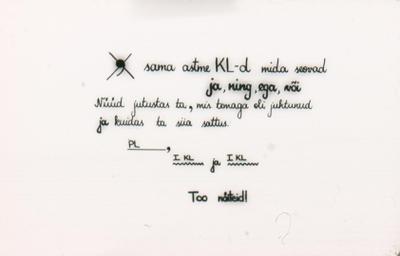 , sama astme KL-d mida seovad
ja, ning, ega, või
Nüüd jutustas ta, mis temaga oli juhtunud
ja kuidas ta siia sattus.
PL,
I KL ja I KL
Too näiteid!